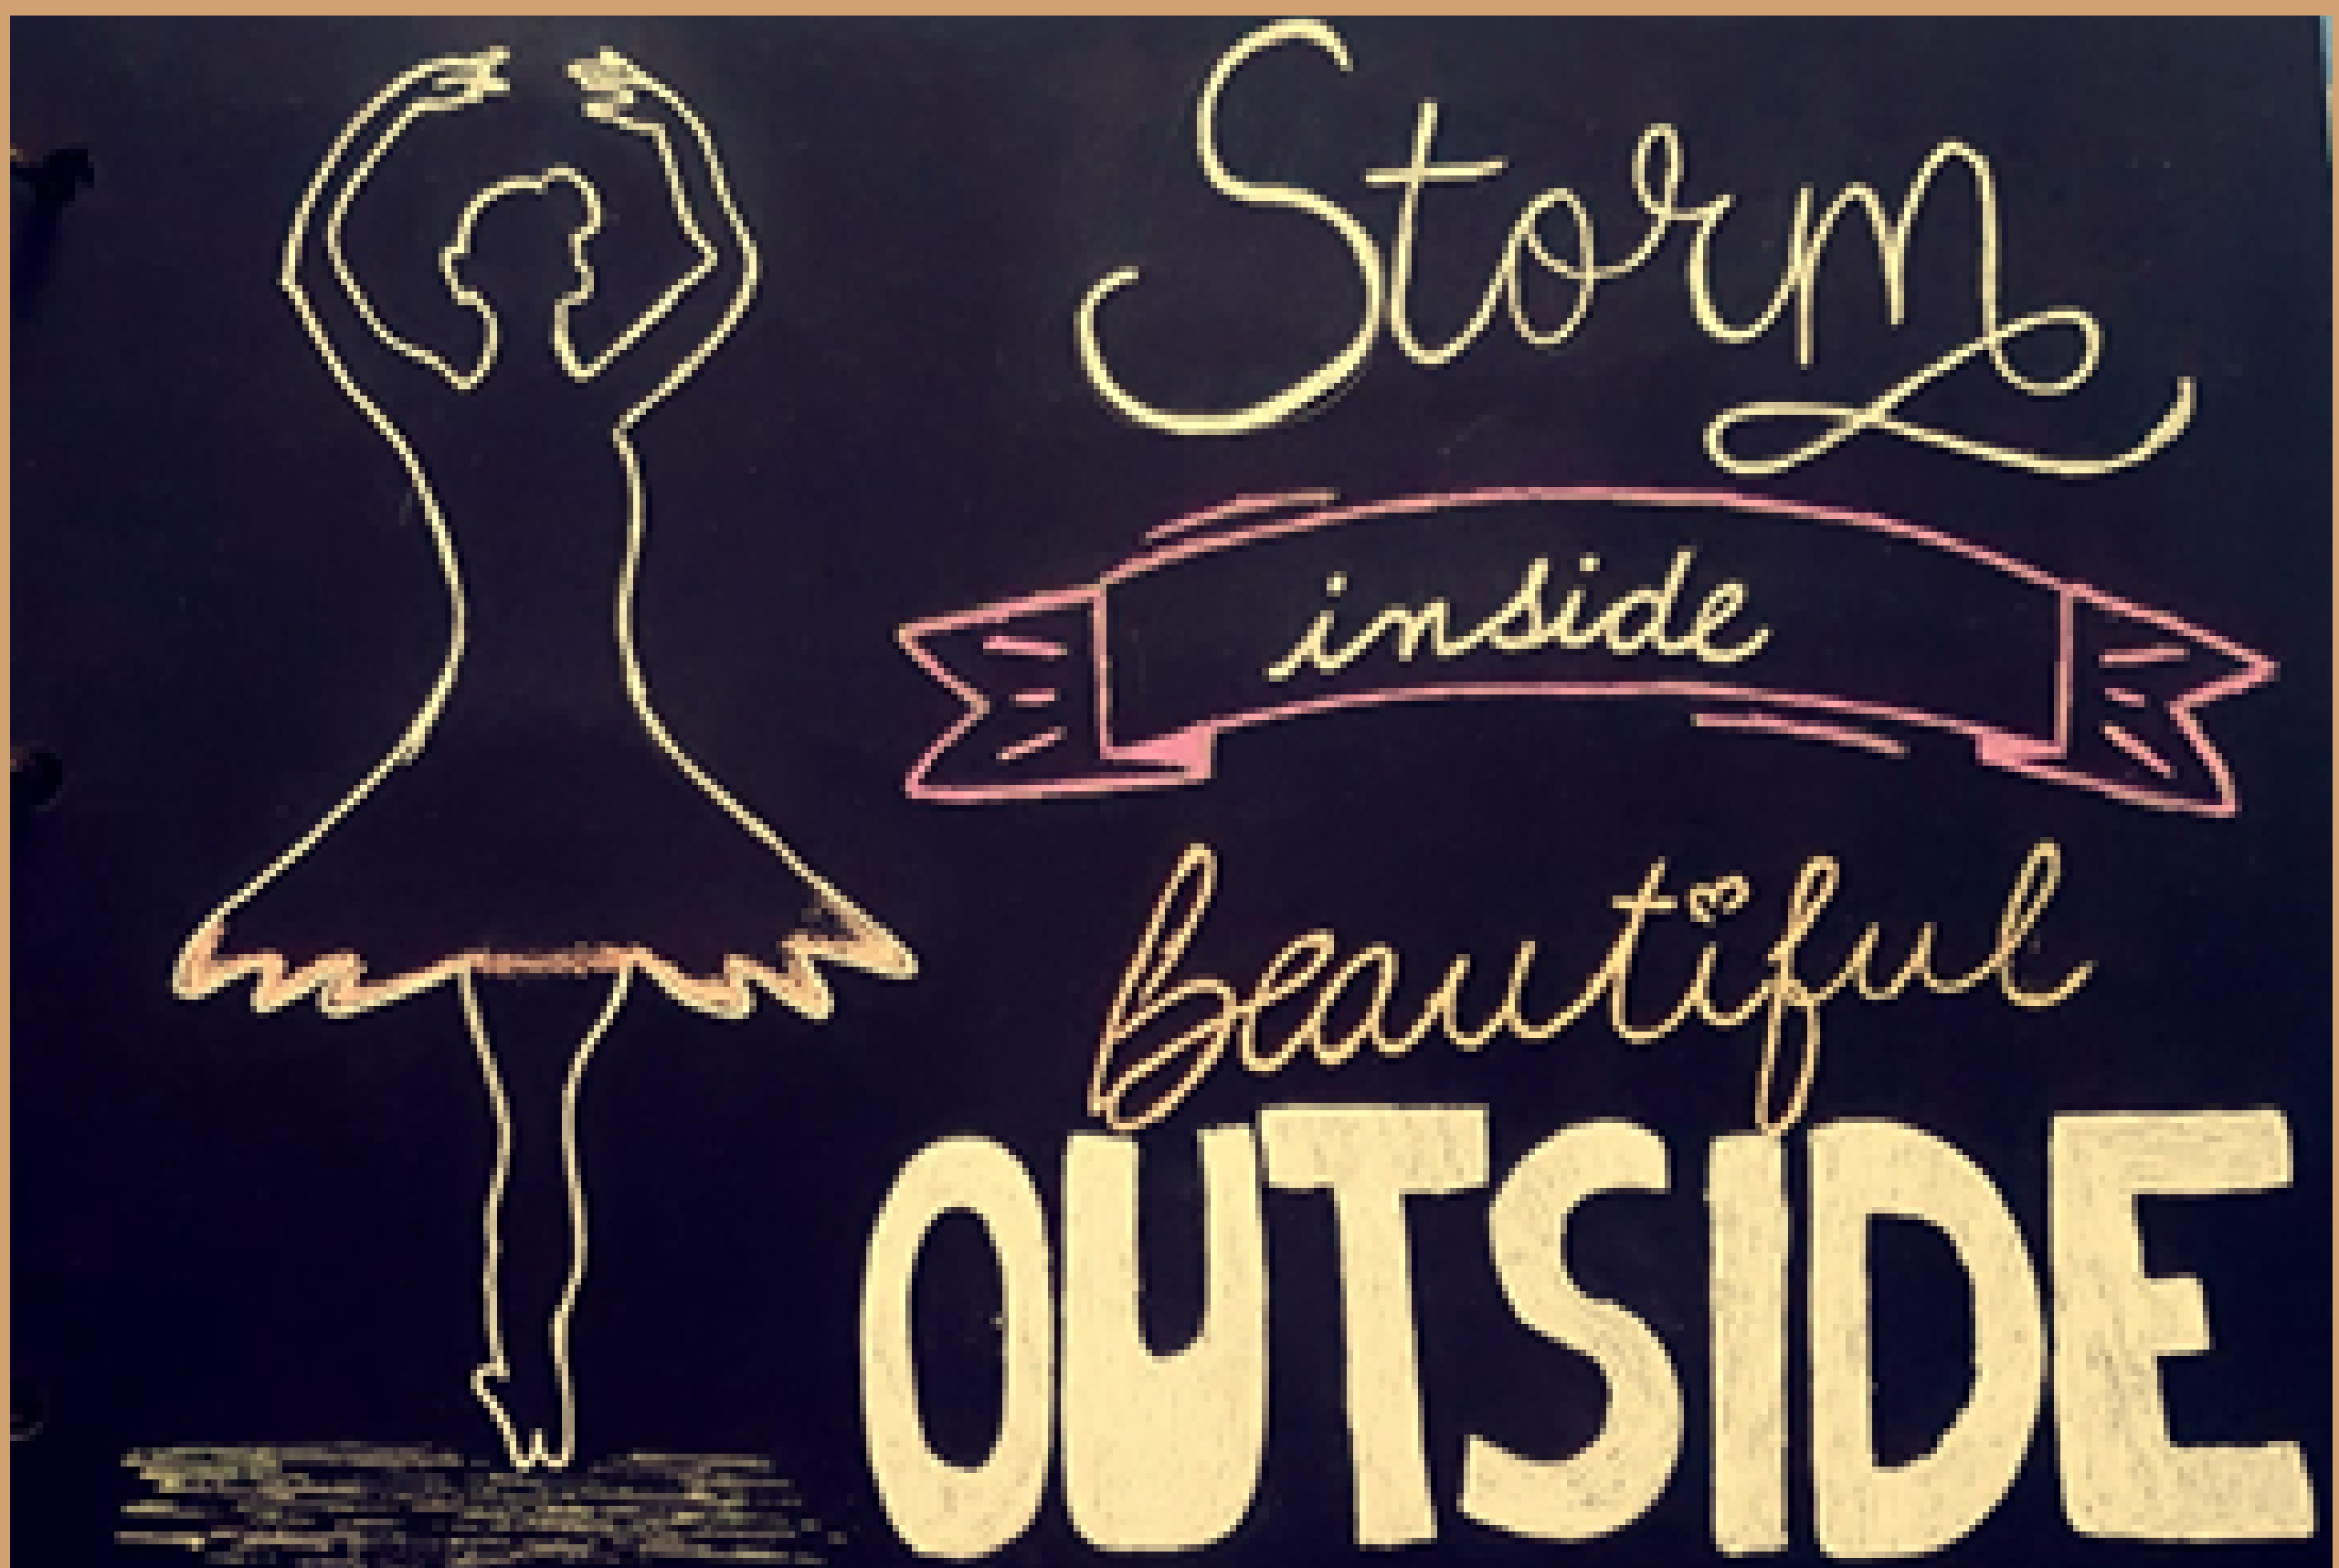 Storm
inside
beautiful
OUTSIDE